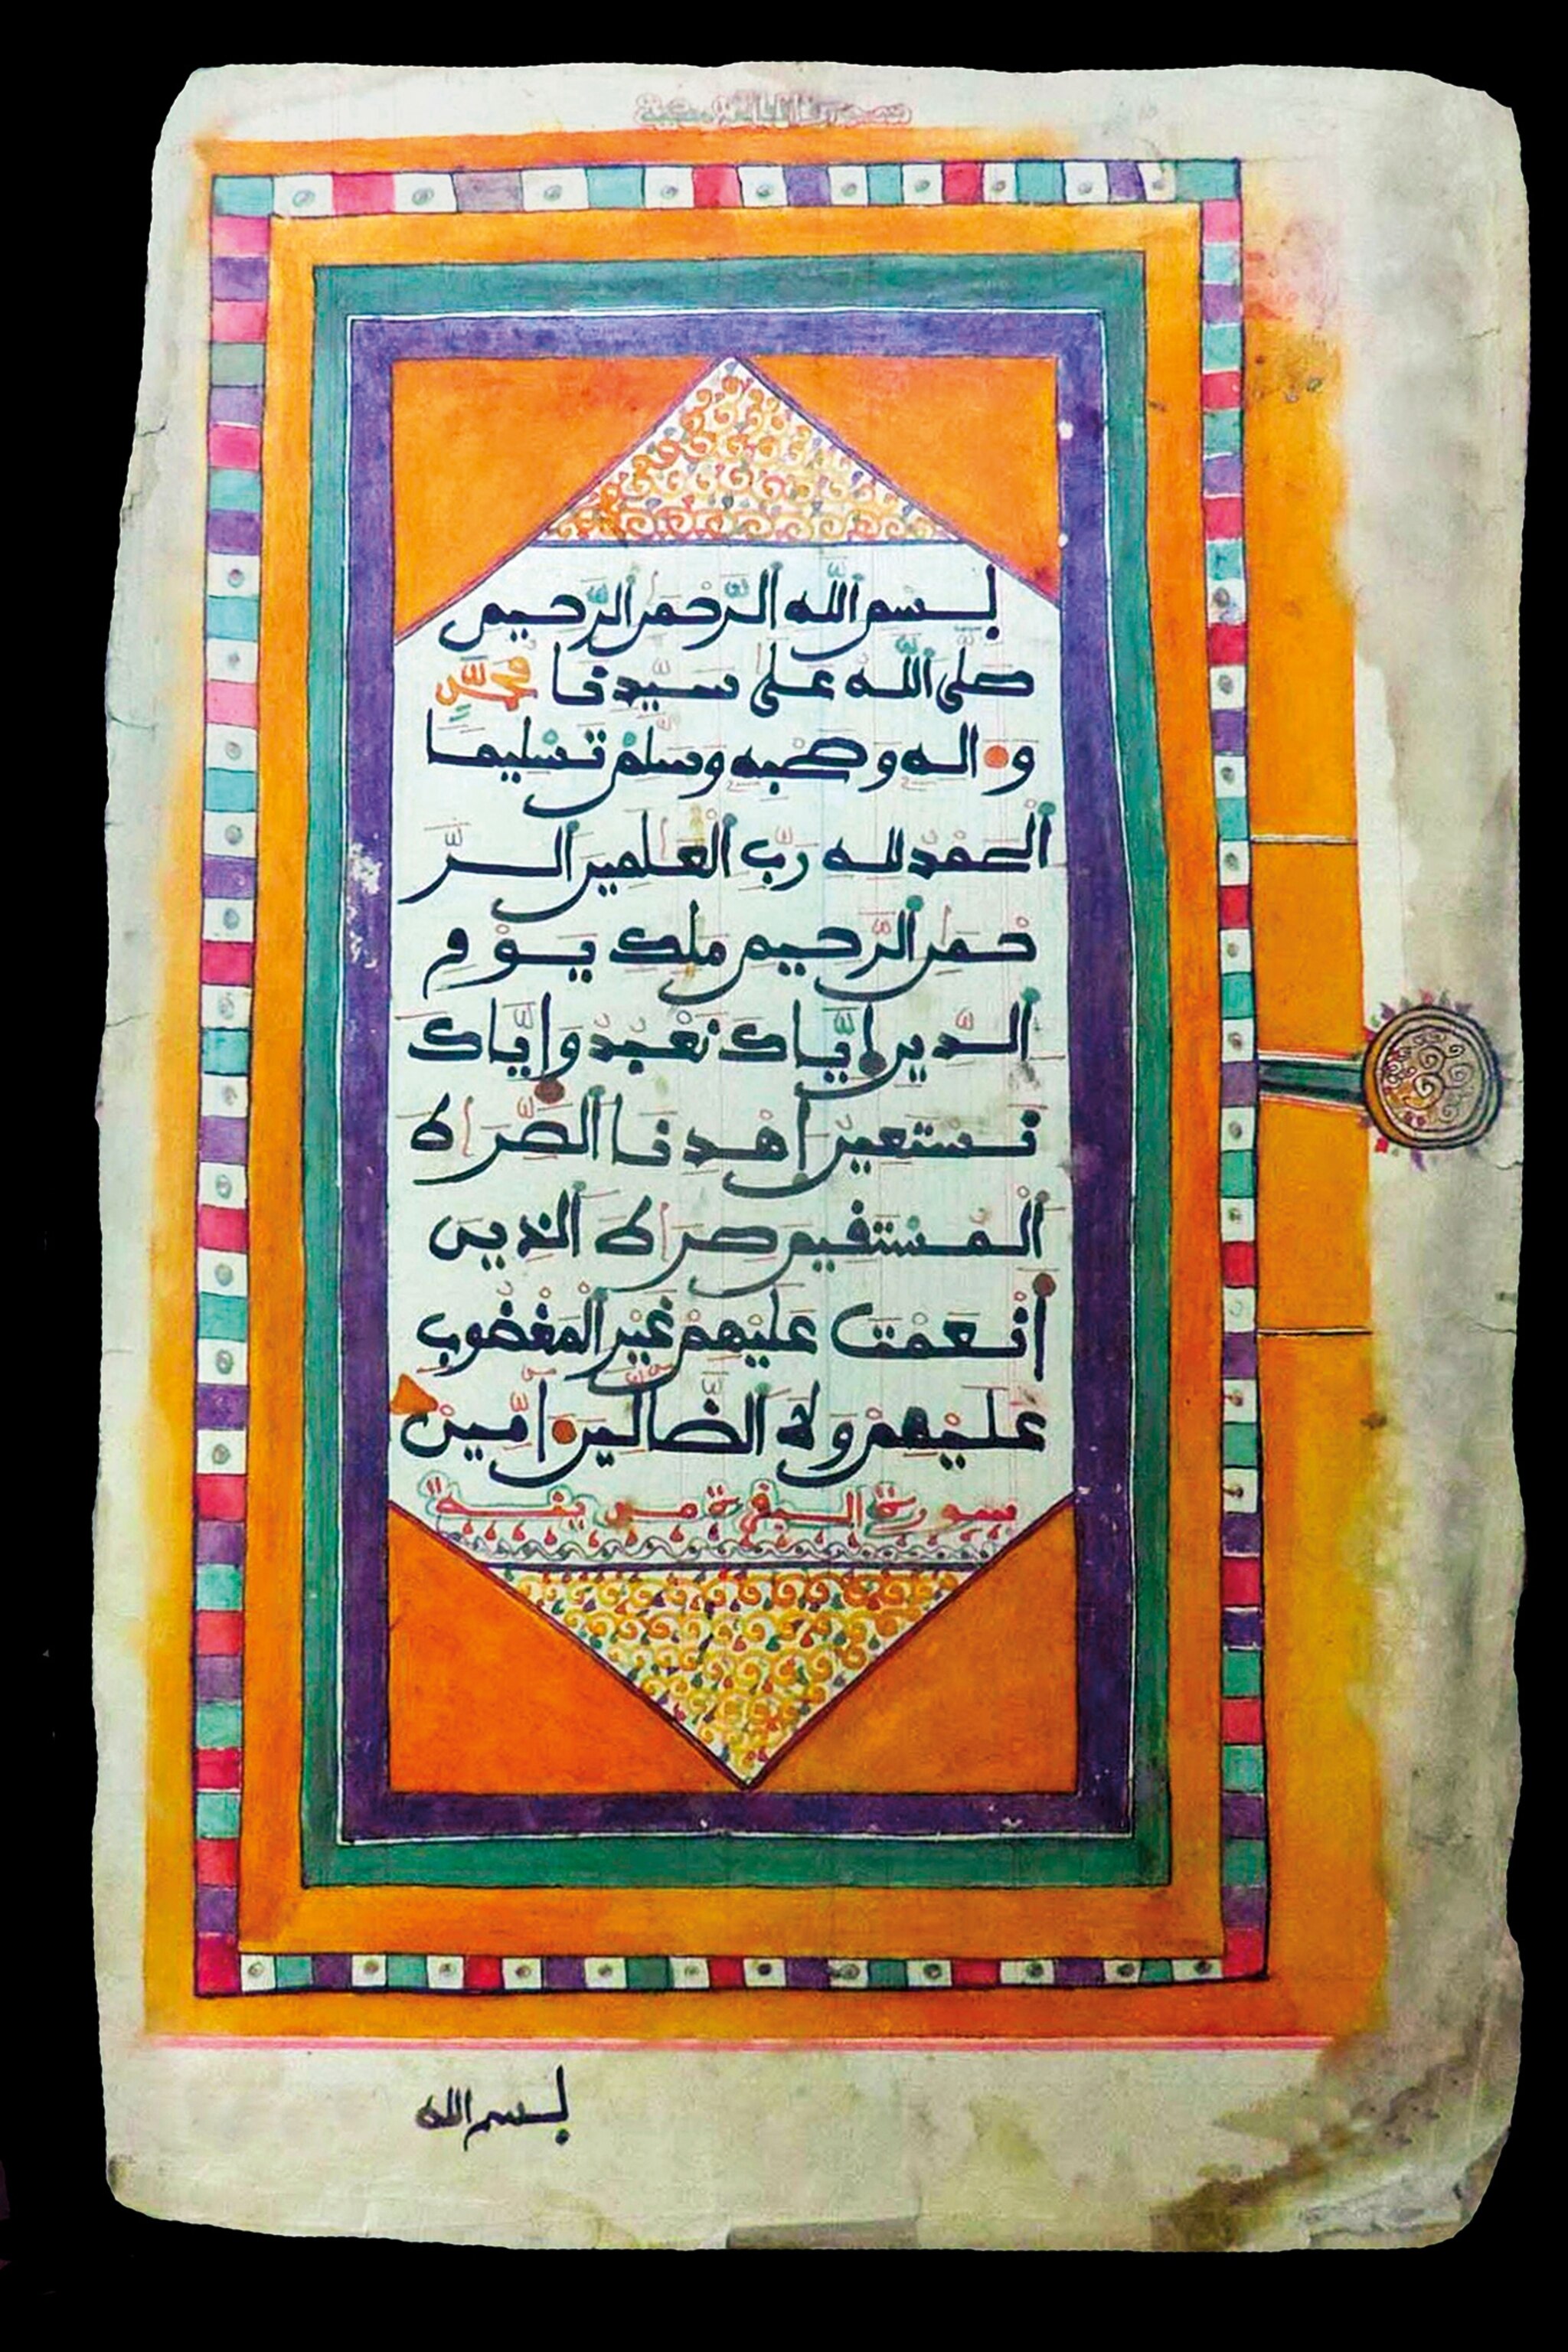 بسم الله الرحمن الرحيم
صلى الله على سيدنا محمد
واله وصحبه وسلم تسليما
الحمد لله رب العلمين الر
حمن الرحيم ملك يوم
الدين إياك نعبد وإياك
نستعين اهدنا الصراط
المستقيم صراط الذين
أنعمت عليهم غير المغضوب
عليهم ولا الضالين امين
سورة البقرة
بسم الله